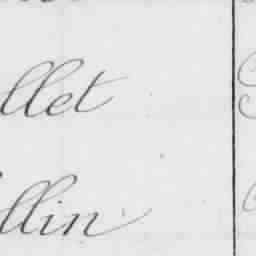 llet
llin